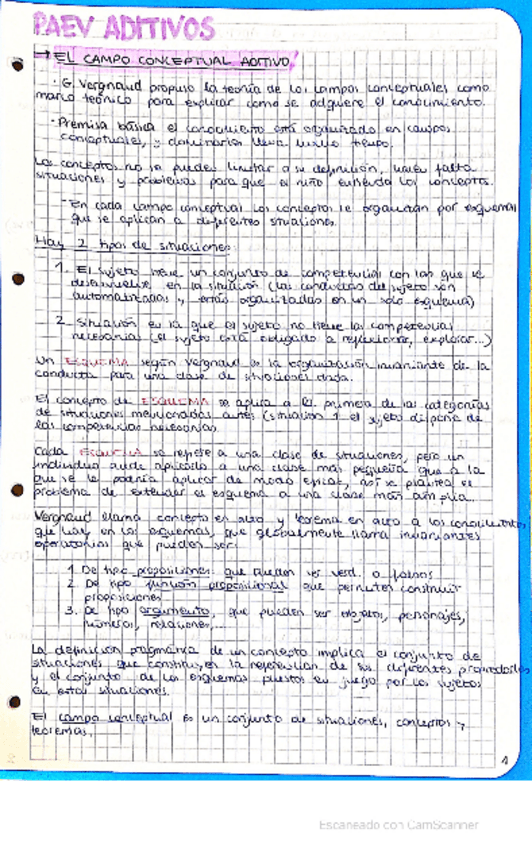 PAEV ADITIVOS
→ EL CAMPO CONCEPTUAL ADITIVO
· G. Vergnaud propuso la teoría de los campos conceptuales como
marco teórico para explicar como se adquiere el conocimiento.
· Premisa básica el conocimiento está organizado en campos
conceptuales, y dominarlos lleva mucho tiempo.
Los conceptos no se pueden limitar a su definición, hacen falta
situaciones y problemas para que el niño entienda los conceptos.
- En cada campo conceptual los conceptos se organizan por esquemas
que se aplican a diferentes situaciones.
Hay 2 tipos de situaciones:
1. El sujeto tiene un conjunto de competencias con las que se
desenvuelve en la situación (las conductas del sujeto son
automatizadas y están organizadas en un solo esquema)
2. Situación en la que el sujeto no tiene las competencias
necesarias (el sujeto está obligado a reflexionar, explorar...)
Un ESQUEMA según Vergnaud es la organización invariante de la
conducta para una clase de situaciones dada.
El concepto de ESQUEMA se aplica a la primera de las categorías
de situaciones mencionadas antes (situación 1 el sujeto dispone de
las competencias necesarias
Cada ESQUEMA se refiere a una clase de situaciones, pero un
individuo puede aplicarlo a una clase más pequeña que a la
que se le podría aplicar de modo eficaz, así se plantea el
problema de extender el esquema a una clase más amplia.
Vergnaud llama concepto en acto y teorema en acto a los conocimientos
que hay en los esquemas, que globalmente llama invariantes
operatorios que pueden ser:
1. De tipo proposiciones: que pueden ser verd. o falsos
2. De tipo función proposicional que permiten construir
proposiciones
3. De tipo argumento, que pueden ser objetos, personajes,
números, relaciones,...
La definición pragmática de un concepto implica el conjunto de
situaciones que constituyen la referencia de sus diferentes propiedades
y el conjunto de los esquemas puestos en juego por los sujetos
en estas situaciones.
El campo conceptual es un conjunto de situaciones, conceptos y
teoremas.
1
Escaneado con CamScanner